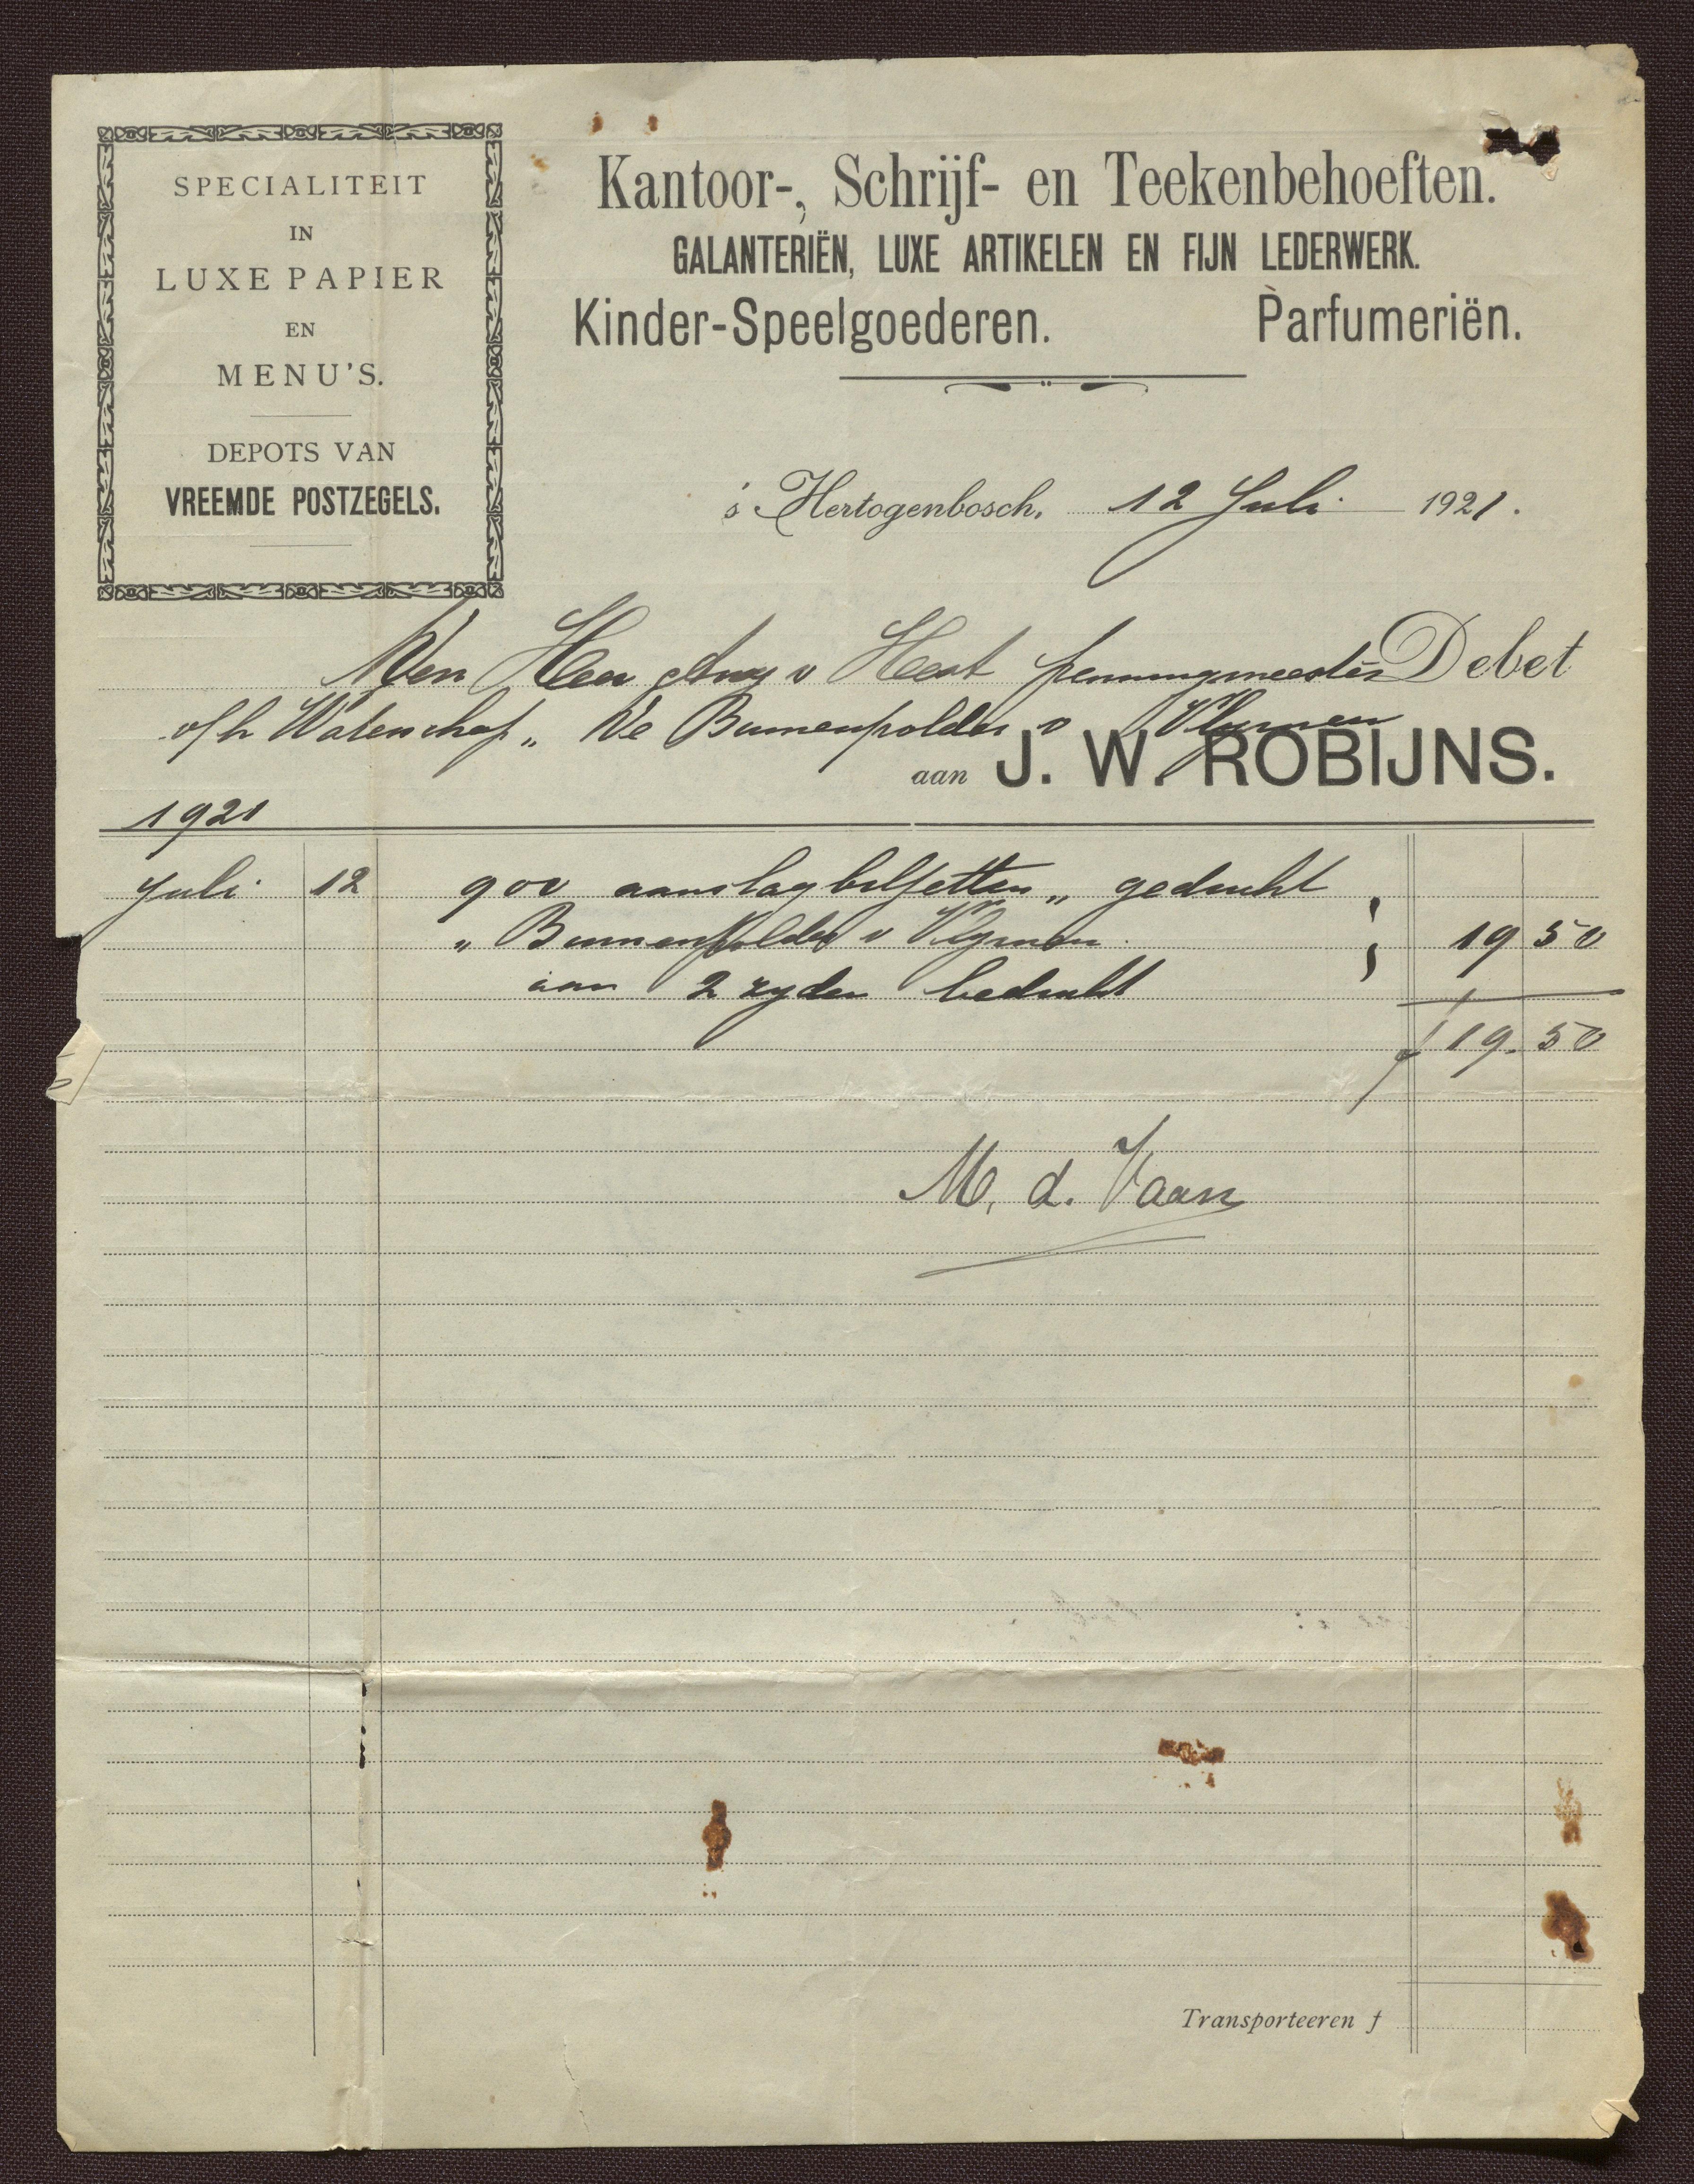 SPECIALITEIT
IN
LUXE PAPIER
EN
MENU'S.
DEPOTS VAN
VREEMDE POSTZEGELS.
Kantoor-, Schrijf- en Teekenbehoeften.
GALANTERIËN, LUXE ARTIKELEN EN FIJN LEDERWERK.
Kinder-Speelgoederen. Parfumeriën.
's Hertogenbosch, 12 Juli 1921.
Den Heer v Hest penningmeester Debet
v/h Waterschap „ De Binnenpolder v Vlymen
aan J. W. ROBIJNS.
1921
Juli 12 900 aanslagbiljetten „ gedrukt
„ Binnenpolder v Vlymen 19 50
aan 2 zyden bedrukt
f 19.50
M. d. Vaan
Transporteeren f